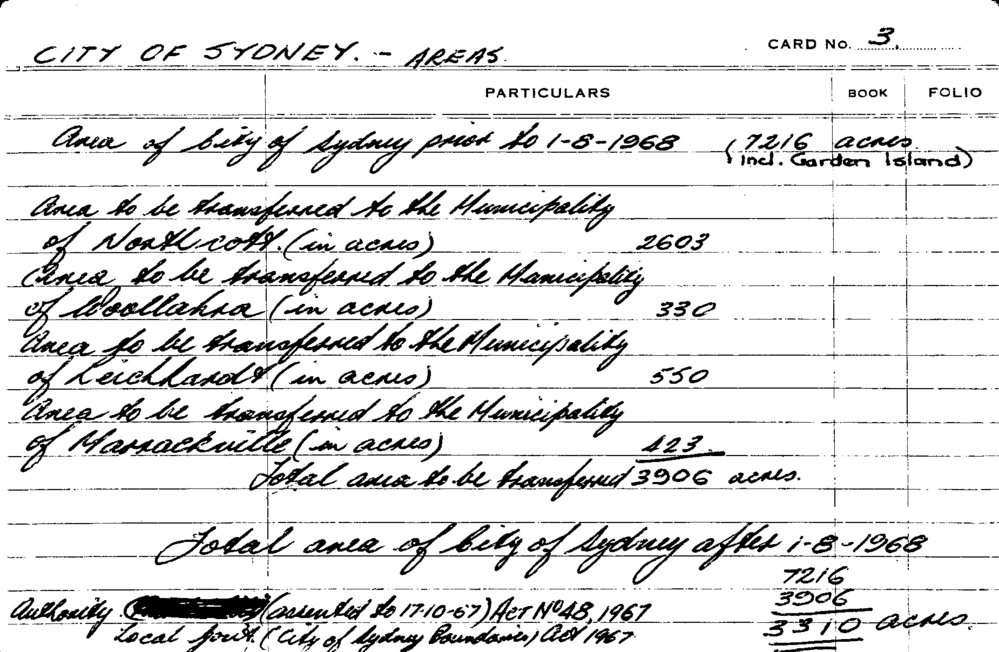 CITY OF SYDNEY. - AREAS. CARD No. 3.
PARTICULARS BOOK FOLIO
Area of City of Sydney prior to 1-8-1968 7216 acres
(incl. Garden Island)
Area to be transferred to the Municipality
of Northcott. (in acres) 2603
Area to be transferred to the Municipality
of Woollahra (in acres) 330
Area to be transferred to the Municipality
of Leichhardt (in acres) 550
Area to be transferred to the Municipality
of Marrackville (in acres) 423
Total area to be transferred 3906 acres.
Total area of City of Sydney after 1-8-1968
7216
3906
Authority (assented to 17-10-67) ACT No 48, 1967
3310 acres.
Local Govt. (City of Sydney Boundaries) Act 1967